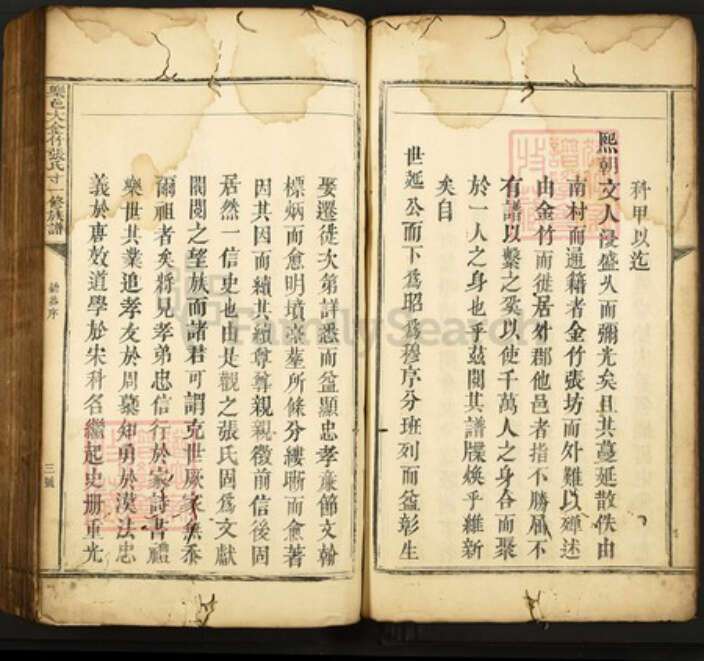 科甲以迄
熙朝文人浸盛久而彌光矣且其蔓延散佚由
南村而通籍者金竹張坊而外難以殫述
由金竹而徙居外郡他邑者指不勝屈不
有譜以繫之奚以使千萬人之身合而聚
於一人之身也乎茲閱其譜牒煥乎維新
矣自
世延公而下為昭為穆序分班列而益彰生
娶遷徙次第詳悉而益顯忠孝廉節文翰
標炳而愈明墳塋墓所條分縷晰而愈著
因其因而續其續尊尊親親徵前信後固
居然一信史也由是觀之張氏固為文獻
閥閱之望族而諸君可謂克世厥家無忝
爾祖者矣將見孝弟忠信行於家詩書禮
樂世其業追孝友於周慕知勇於漢法忠
義於唐效道學於宋科名繼起史册重光
樂邑大金竹張氏十一修族譜
序
三號
FamilySearch